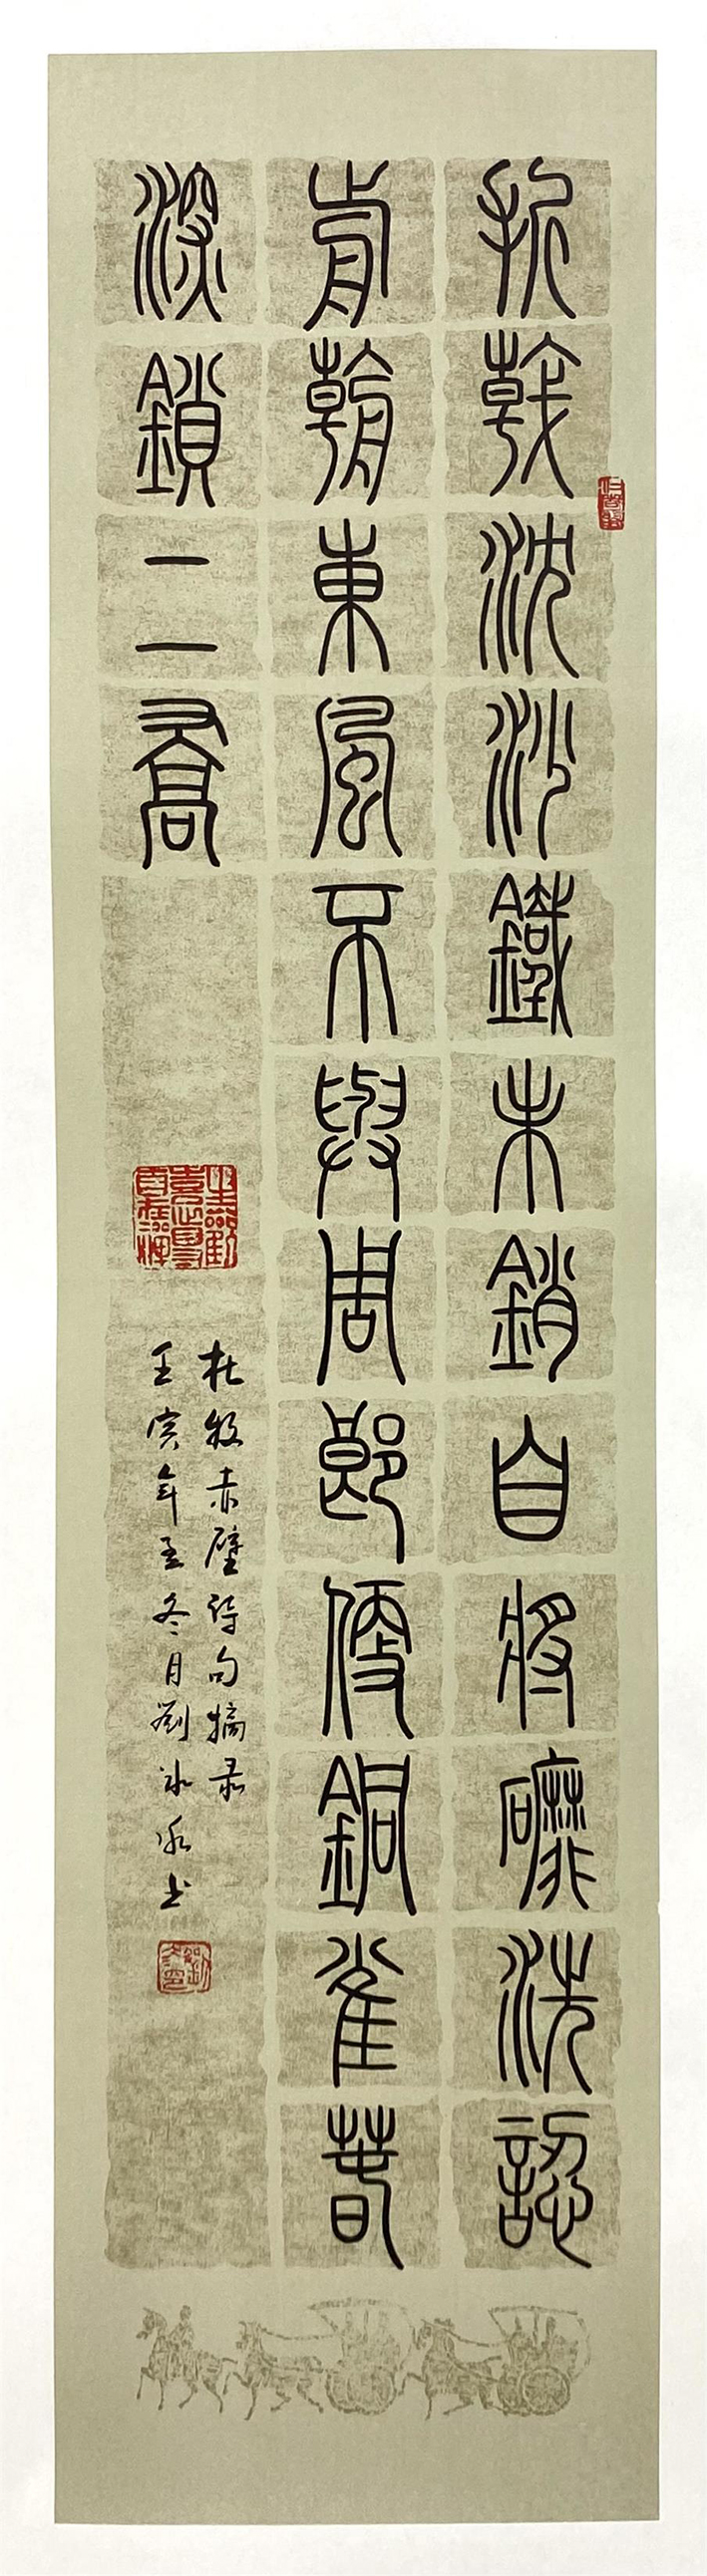 折戟沈沙鐵未銷自將磨洗認
前朝東風不與周郎便銅雀春
深鎖二喬
杜牧赤壁詩句摘录
壬寅年孟冬月劉冰泳书